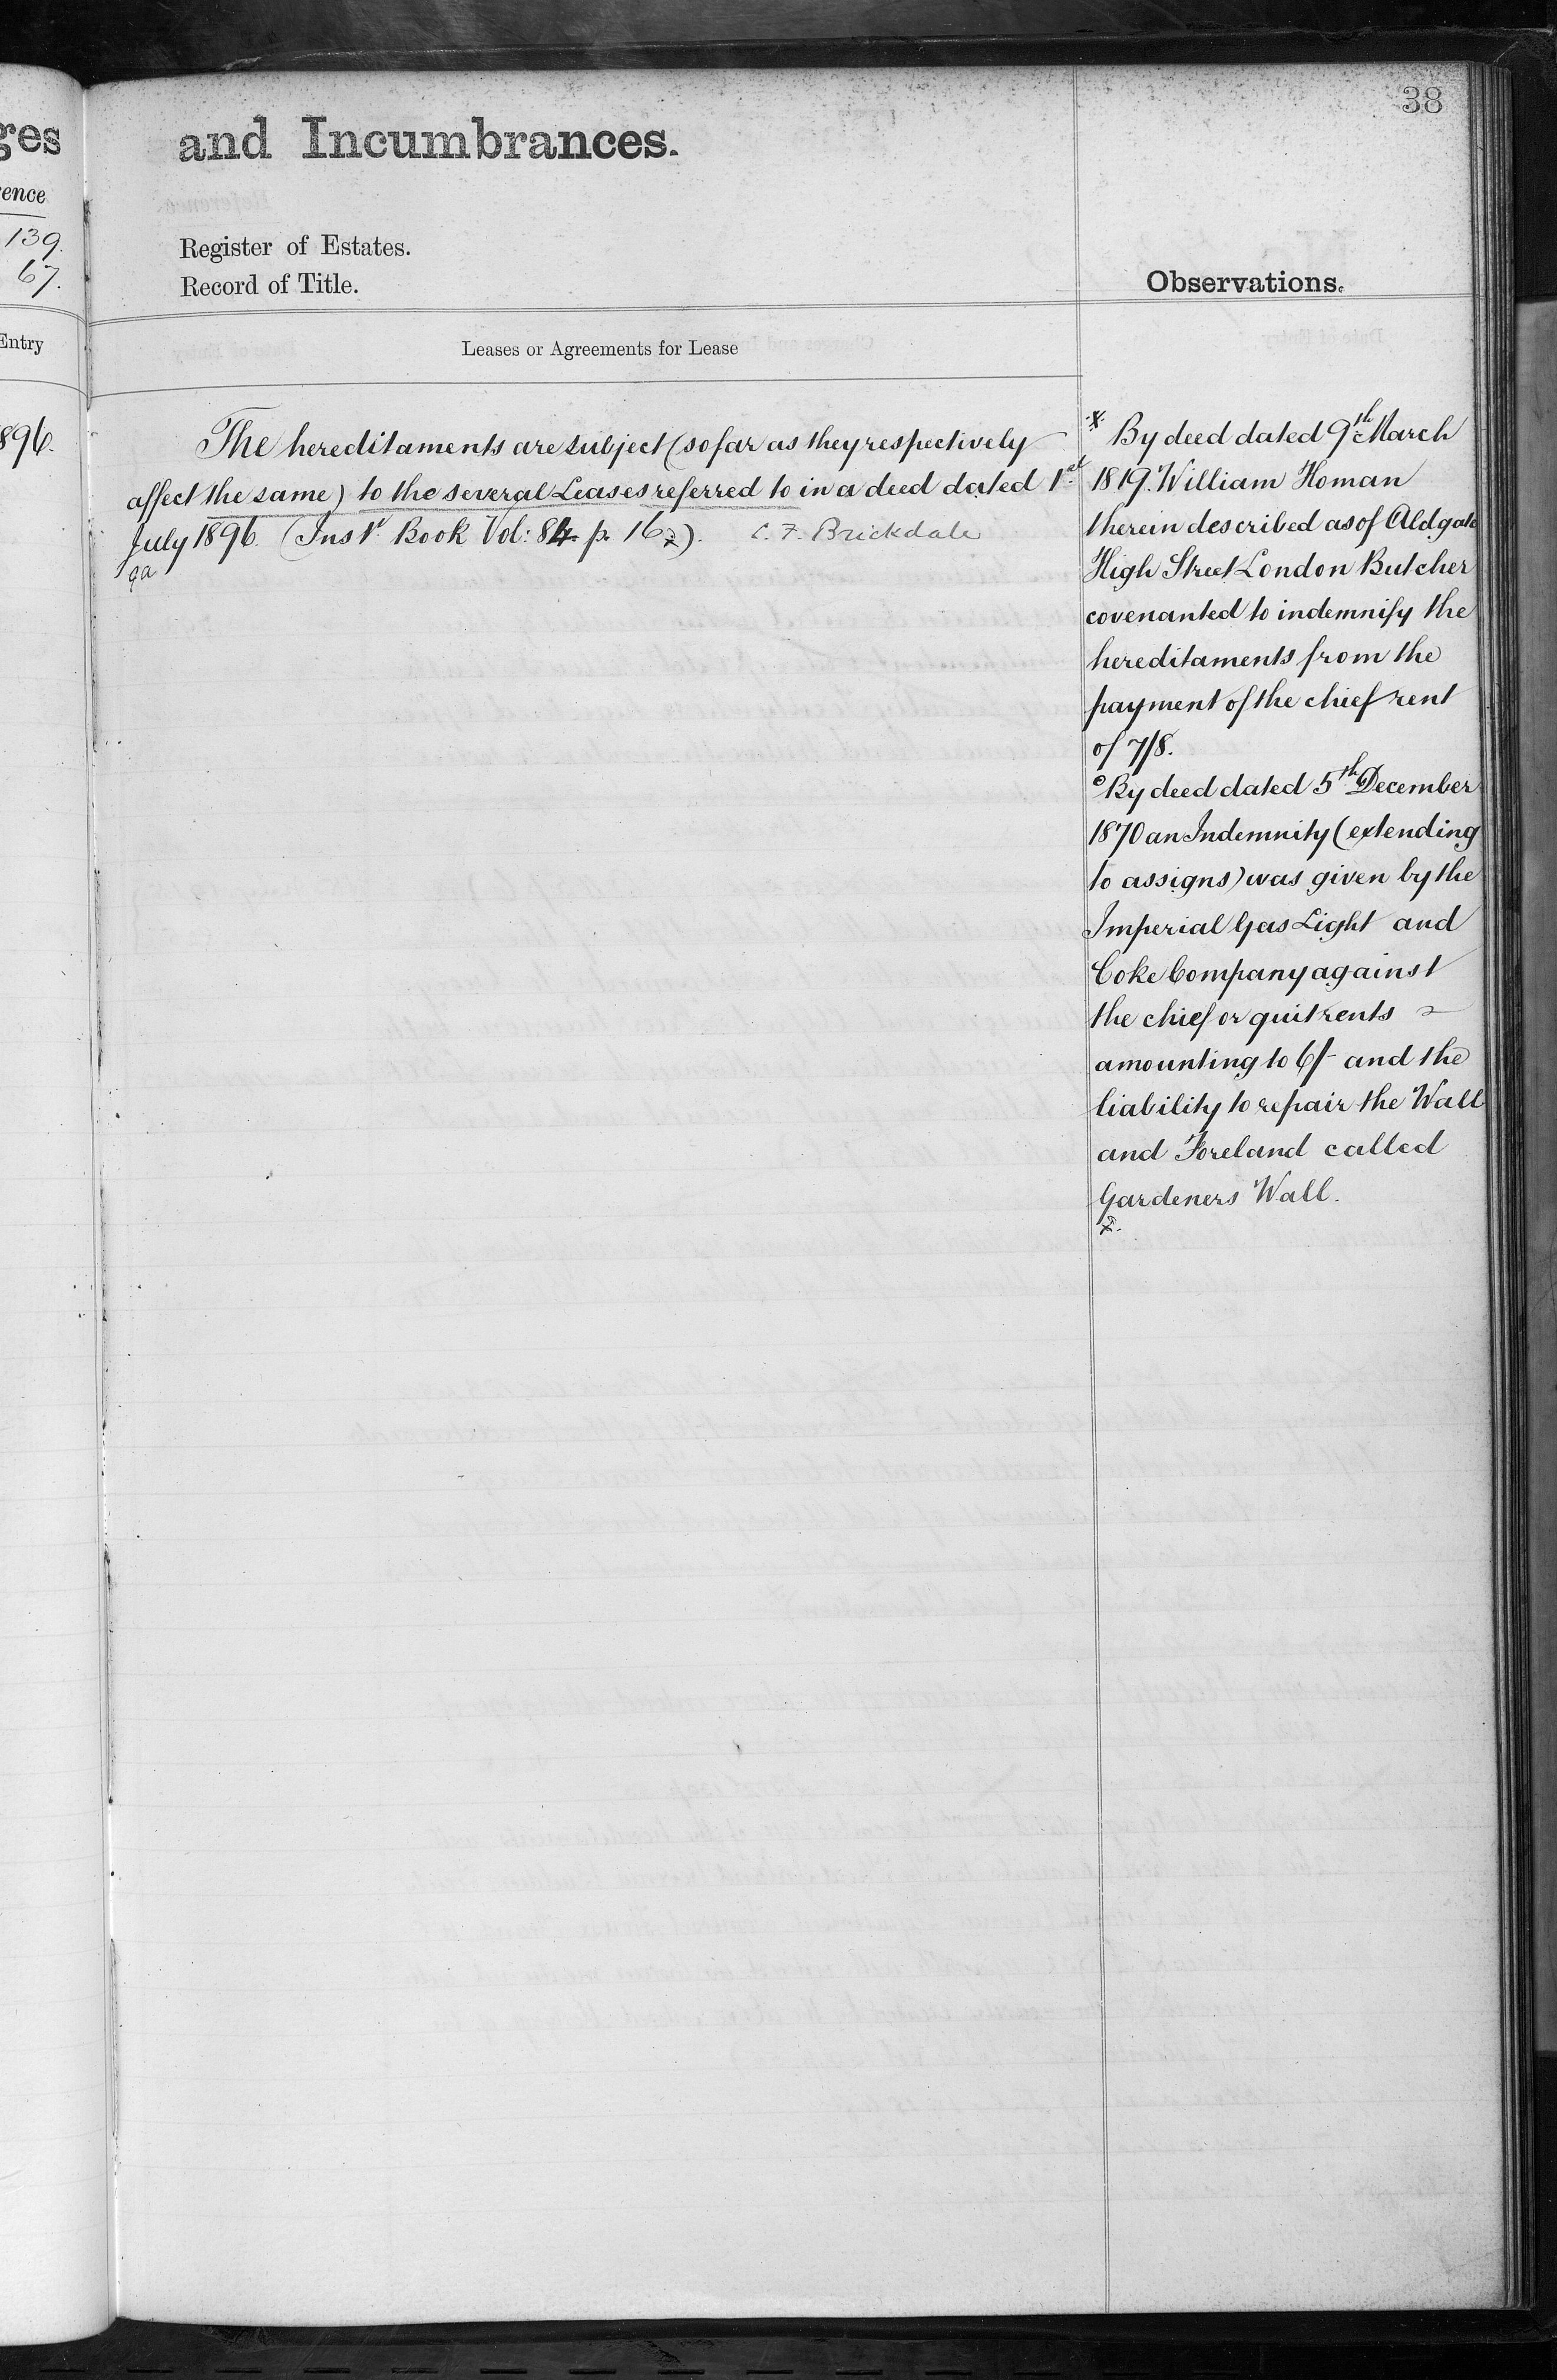 38
ges
and Incumbrances.
ence
139.
67.
Register of Estates.
Record of Title.
Observations.
Entry
Leases or Agreements for Lease
896.
The hereditaments are subject (so far as they respectively
affect the same) to the several Leases referred to in a deed dated 1st
July 1896. (Inst Book Vol: 84 p. 16). C. F. Brickdale
By deed dated 9th March
1819. William Homan
therein described as of Aldgate
High Street London Butcher
covenanted to indemnify the
hereditaments from the
payment of the chief rent
of 7/8.
By deed dated 5th December
1870 an Indemnity (extending
to assigns) was given by the
Imperial Gas Light and
Coke Company against
the chief or quit rents
amounting to 6/- and the
liability to repair the Wall
and Foreland called
Gardeners Wall.